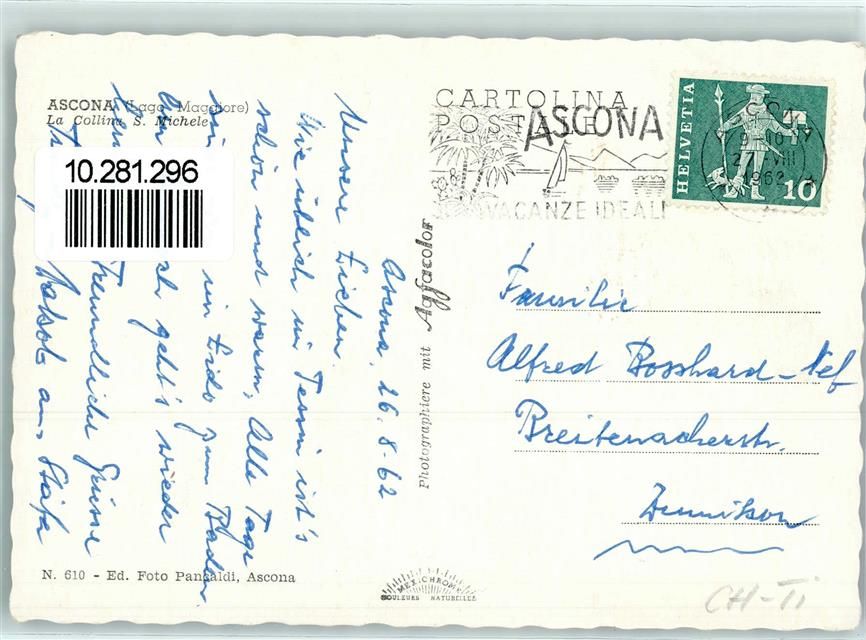 ASCONA (Lago Maggiore)
La Collina S. Michele
10.281.296
CARTOLINA
POSTALE
ASCONA
VACANZE IDEALI
HELVETIA
10
27. VIII
1962
Ascona, 26.8.62
Unsere Lieben.
Wie üblich im Tessin ist's
schön und warm, Alle Tage
im Lido zum Baden.
geht's wieder
Freundliche Grüsse
aus Stäfa
Photographiere mit Agfacolor
Familie
Alfred Bosshard-Nef
Breitenacherstr.
Zumikon
N. 610 - Ed. Foto Pancaldi, Ascona
MEXICHROME
COULEURS NATURELLES
CH-TI